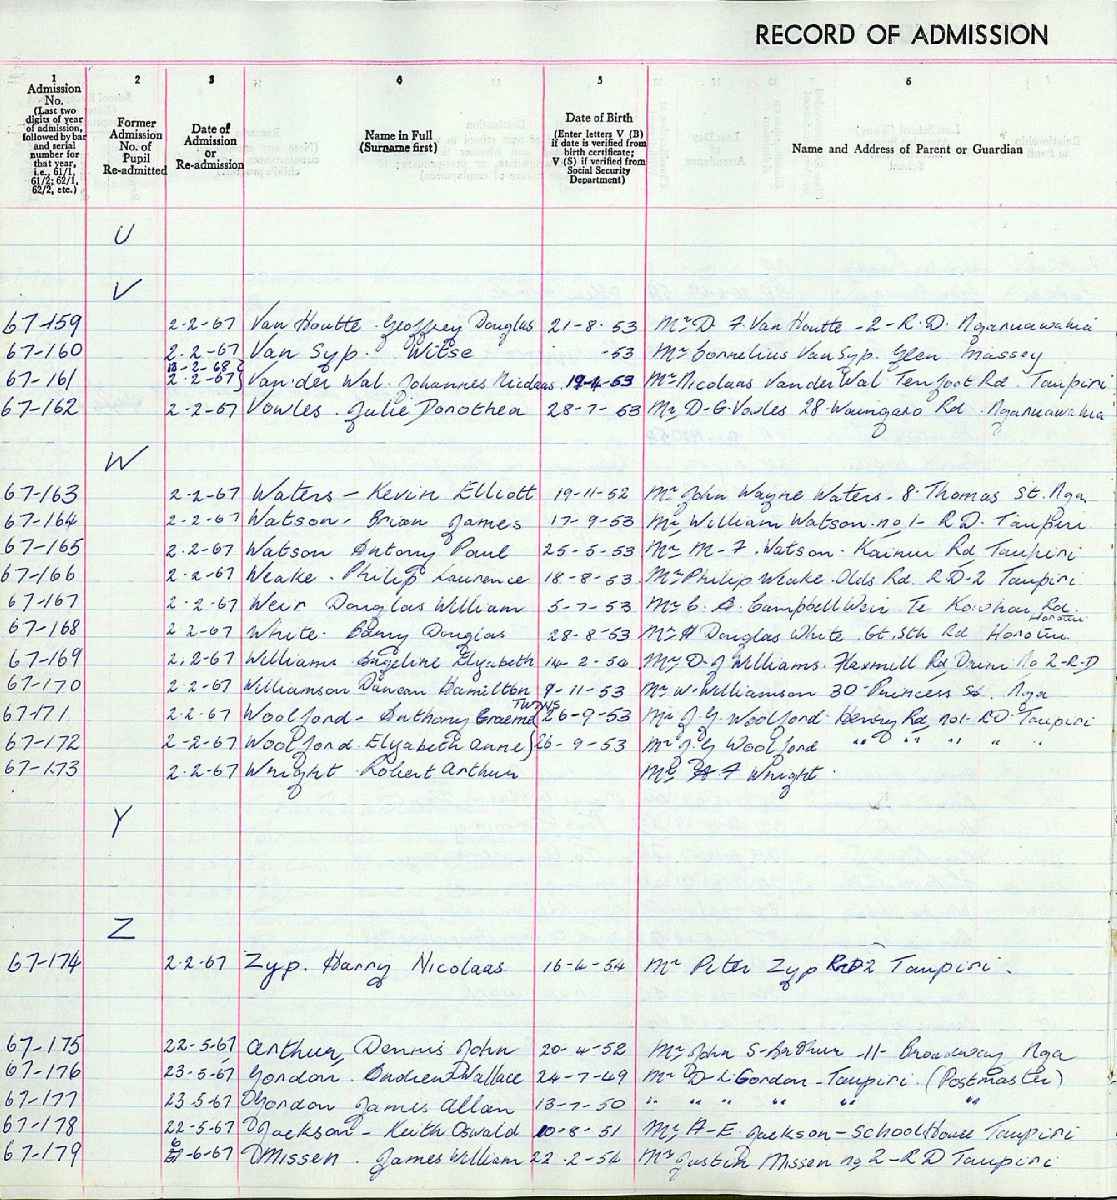 RECORD OF ADMISSION
1 2 3 4 5 6
Admission No. (Last two digits of year of admission, followed by bar and serial number for that year, i.e., 61/1, 61/2; 62/1, 62/2, etc.)
Former Admission No. of Pupil Re-admitted
Date of Admission or Re-admission
Name in Full (Surname first)
Date of Birth (Enter letters V (B) if date is verified from birth certificate; V (S) if verified from Social Security Department)
Name and Address of Parent or Guardian
U
V
67-159 2-2-67 Van Houtte Geoffrey Douglas 21-8-53 Mr D F Van Houtte - 2 - R.D. Ngaruawahia
67-160 2-2-67 Van Syp. Witse -53 Mr Cornelius Van Syp. Glen Massey
-2-68
67-161 2-2-67 Van der Wal Johannes Nicolaas 19-4-53 Mr Nicolaas Van der Wal Tenfoot Rd. Taupiri
67-162 2-2-67 Vowles Julie Dorothea 28-7-53 Mr D-G Vowles 28 Waingaro Rd Ngaruawahia
W
67-163 2-2-67 Waters - Kevin Elliott 19-11-52 Mr John Wayne Waters - 8 Thomas St. Nga
67-164 2-2-67 Watson - Brian James 17-9-53 Mr William Watson no 1 - R.D. Taupiri
67-165 2-2-67 Watson Antony Paul 25-5-53 Mr M-F Watson Kainui Rd Taupiri
67-166 2-2-67 Weake - Philip Laurence 18-8-53 Mr Philip Weake Olds Rd. R.D-2 Taupiri
67-167 2-2-67 Weir Douglas William 5-7-53 Mr C. A. Campbell Weir Te Kowhai Rd. Horotiu
67-168 2-2-67 White Barry Douglas 28-8-53 Mr H Douglas White Gt. Sth Rd Horotiu
67-169 2-2-67 Williams Angeline Elizabeth 14-2-54 Mr D J Williams Flaxmill Rd Drum No 2-R-D
67-170 2-2-67 Williamson Duncan Hamilton 9-11-53 Mr W. Williamson 30 Princess St. Nga
TWINS
67-171 2-2-67 Woolford - Anthony Graeme 26-9-53 Mr J. G Woolford Henry Rd, no 1-RD Taupiri
67-172 2-2-67 Woolford Elizabeth Anne 26-9-53 Mr J. G Woolford " " " " "
67-173 2-2-67 Wright Robert Arthur Mr A F Wright
Y
Z
67-174 2-2-67 Zyp. Harry Nicolaas 16-4-54 Mr Peter Zyp R.D 2 Taupiri.
67-175 22-5-67 Arthur Dennis John 20-4-52 Mr John S. Arthur -11- Broadway Nga
67-176 23-5-67 Gordon Andrew Wallace 24-7-49 Mr D-L Gordon - Taupiri (Postmaster)
67-177 23-5-67 Gordon James Allan 13-7-50 " " " " " "
67-178 22-5-67 Jackson - Keith Oswald 10-8-51 Mr A-E Jackson - School House Taupiri
67-179 6-6-67 Missen James William 22-2-54 Mr Justin Missen no 2-RD Taupiri